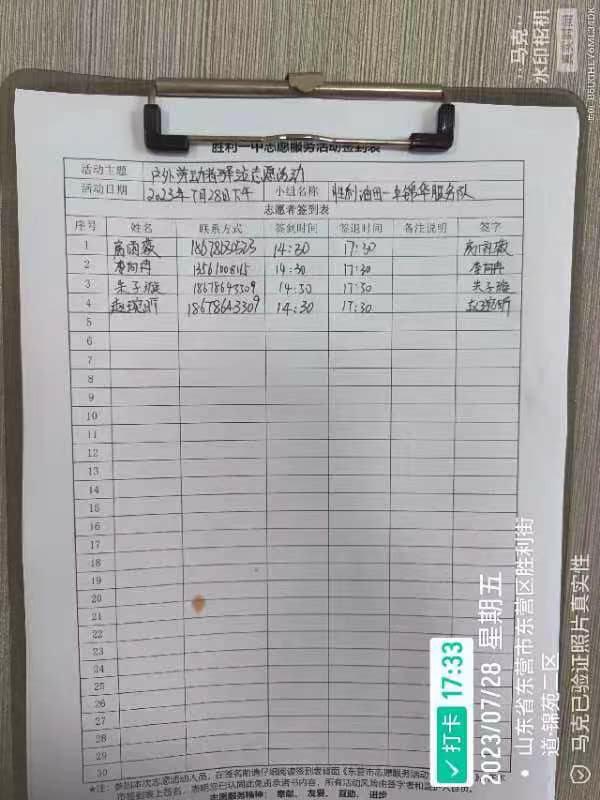 胜利一中志愿服务活动签到表
活动主题 户外劳动者驿站志愿活动
活动日期 2023年7月28日下午 小组名称 胜利油田一中锦华服务队
志愿者签到表
序号 姓名 联系方式 签到时间 签退时间 备注说明 签字
1 14:30 17:30
2 14:30 17:30
3 朱子璇 18678643309 14:30 17:30 朱子璇
4 赵琬昕 18678643309 14:30 17:30 赵琬昕
5
6
7
8
9
10
11
12
13
14
15
16
17
18
19
20
21
22
23
24
25
26
27
28
29
30
*注:参加本次志愿活动人员,在签名前请仔细阅读签到表背面《东营市志愿服务活动
市签到表上签名,表明您已认同此免责承诺书内容,所有活动风险由签字者和监护人自负。
志愿服务精神:奉献、友爱、互助、进步
打卡 17:33
2023/07/28 星期五
山东省东营市东营区胜利街
道·锦苑二区
马克已验证照片真实性
马克
水印相机
真实时间